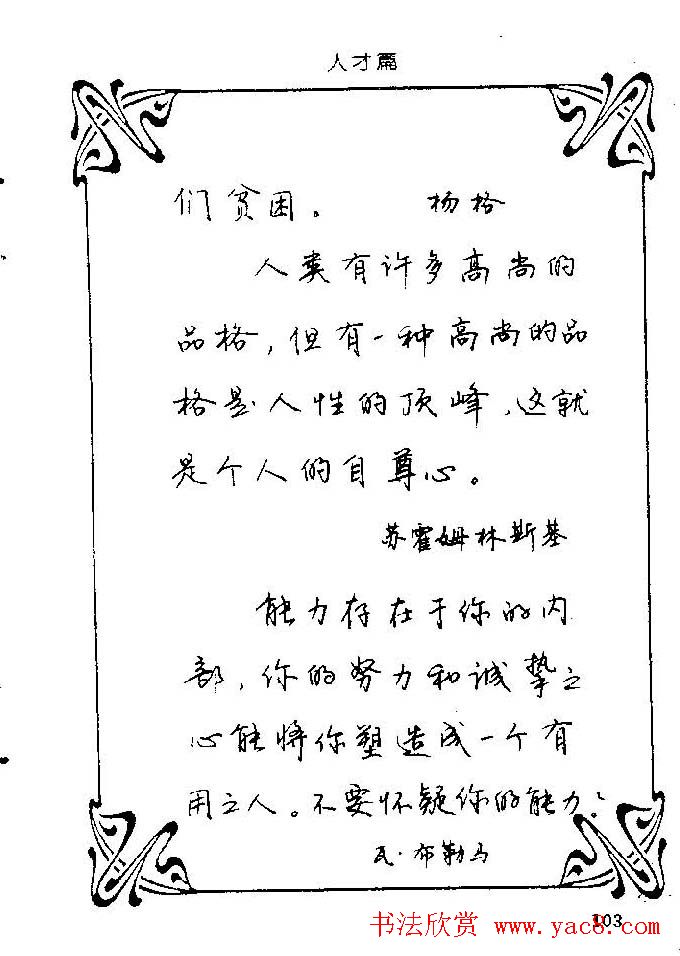 人才篇
们贫困。 杨格
人类有许多高尚的
品格，但有一种高尚的品
格是人性的顶峰，这就
是个人的自尊心。
苏霍姆林斯基
能力存在于你的内
部，你的努力和诚挚之
心能将你塑造成一个有
用之人。不要怀疑你的能力！
瓦·布勒马
103
书法欣赏 www.yac8.com